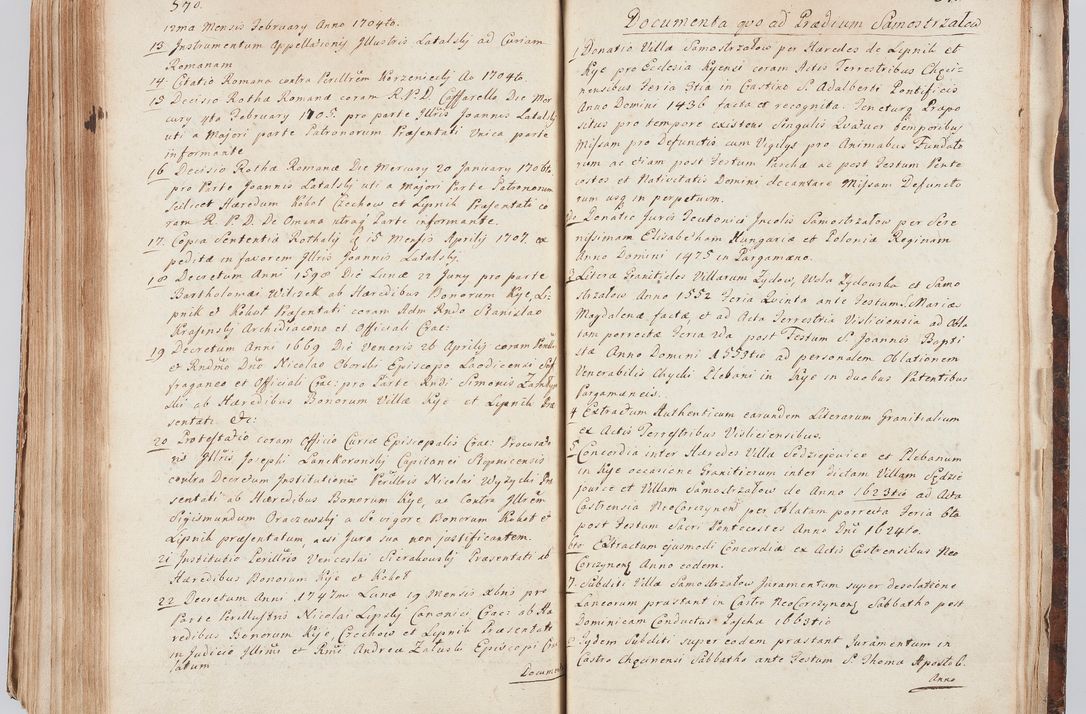 570.
12ma Mensis February Anno 1704to.
13 Instrumentum Appellaõnis Jllustris Latalsky ad Curiam
Romanam
14. Citatio Romana contra Perillrẽm Korzeniecky Ao 1704to.
15 Decisio Rotha Romanæ coram R. P. D. Caffarello Die Mer
cury 4ta February 1705. pro parte Jllris Joannis Latalsky
uti a Majori parte Patronorum Præsentati Unica parte
informante
16 Decisio Rothæ Romanæ Die Mercury 20 January 1706to
pro Parte Joannis Latalsky uti a Majori Parte Patronorum
scilicet Hæredum Kokot Czechow et Lipnik Præsentati co
ram R. P. D. De Omena utraq Parte informante.
17. Copia Sententiæ Rothalis 15 Mensis Aprilis 1707. ex
pedita in favorem Jllris Joannis Latalsky.
18 Decretum Anni 1598 Die Lunæ 22 Juny pro parte
Bartholomæi Wilczek ab Hæredibus Bonorum Kye, Li-
pnik et Kokot Præsentati coram Adm Rndo Stanislao
Krasinsky Archidiacono et Officiali Crac:
19 Decretum Anni 1669 Die Veneris 26 Aprilis coram
et Rndmo Dno Nicolao Oborski Episcopo Laodicensi Suf
fraganeo et Officiali Crac: pro Parte Rndi Simonis
ski ab Hæredibus Bonorum Villæ Kye et Lipnik Præ
sentati &c:
20 Protestatio coram Officio Curiæ Episcopalis Crac: Procurato
ris Jllris Josephi Lanckoronsky Capitanei Stopnicensis
contra Decretum Institutionis Perillris Nicolai Wyżycki Præ
sentati ab Hæredibus Bonorum Kye, ac contra Jllrẽm
Sigismundum Oraczewsky a Se vigore Bonorum Kokot et
Lipnik præsentatum, acsi Jura sua non justificantem.
21 Institutio Perillris Venceslai Sierakowsky Præsentati ab
Hæredibus Bonorum Kye et Kokot
22 Decretum Anni 1747mi Lunæ 19 Mensis Xbris pro
Parte Perillustris Nicolai Lipsky Canonici Crac: ab Hæ
redibus Bonorum Kye, Czechow et Lipnik Præsentati
in Judicio Jllmi et Rmi Andreæ Zaluski Episcopi Crac
latum
Documenta
Documenta quo ad Prædium Samostrzałow
1 Donatio Villæ Samostrzałow per Hæredes de Lipnik et
Kye pro Ecclesia Kyensi coram Actis Terrestribus Chęci-
nensibus Feria 3tia in Crastino S. Adalberti Pontificis
Anno Domini 1436 facta et recognita. Teneturq Præpo
situs pro tempore existens Singulis Quatuor temporibus
Missam pro Defunctis cum Vigilys pro Animabus Fundato
rum ac etiam post Festum Paschæ ac post Festum Pente
costes et Nativitatis Domini decantare Missam Defuncto
rum usq in perpetuum.
2o Donatio Juris Teutonici Incolis Samostrzałow per Sere
nissimam Elisabetham Hungariæ et Poloniæ Reginam
Anno Domini 1475 in Pargameno.
3 Literæ Graniticles Villarum Zydow, Wola Zydowska et Samo
strzałow Anno 1552 Feria Quinta ante Festum S. Mariæ
Magdalenæ factæ et ad Acta Terrestria Visliciensia ad Obla
tam porrectæ Feria 2da post Festum S. Joannis Bapti
stæ Anno Domini 1553tio ad personalem Oblationem
Venerabilis Chycki Plebani in Kye in duobus Patentibus
Pargameneis.
4 Extractum Authenticum earundem Literarum Granitialium
ex Actis Terrestribus Visliciensibus.
5 Concordia inter Hæredes Villæ Sędziejowice et Plebanum
in Kye occasione Granitierum inter dictam Villam Sędzie
jowice et Villam Samostrzałow de Anno 1623tio ad Acta
Castrensia NeoCorczynen per Oblatam porrecta Feria 6ta
post Festum Sacri Pentecostes Anno Dni 1624to.
6to Extractum ejusmodi Concordiæ ex Actis Castrensibus Neo
Corczynen Anno eodem.
7. Subditi Villæ Samostrzałow Juramentum super desolatione
Laneorum præstant in Castro NeoCorczynen Sabbatho post
Dominicam Conductus Pascha 1663tio
Jydem Subditi super eodem præstant Juramentum in
Castro Chęcinensi Sabbatho ante Festum S. Thomæ Apostoli.
Anno